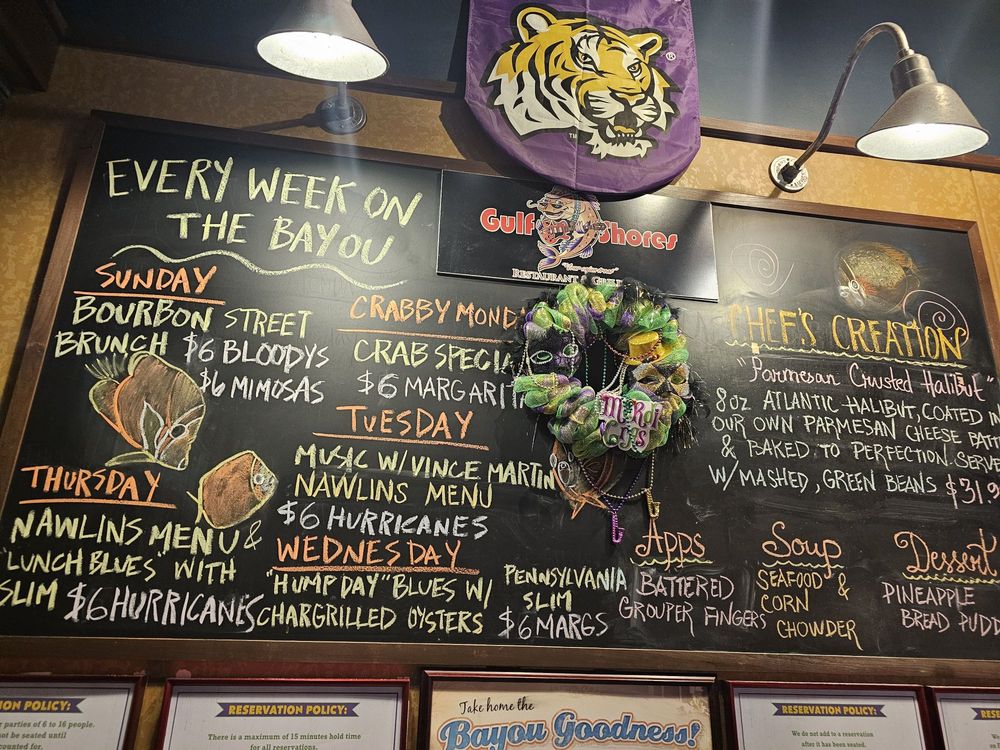 EVERY WEEK ON
THE BAYOU
SUNDAY
BOURBON STREET
BRUNCH $6 BLOODYS
$6 MIMOSAS
THURSDAY
NAWLINS MENU &
"LUNCH BLUES" WITH
SLIM $6 HURRICANES
CRABBY MOND
CRAB SPECIA
$6 MARGARIT
TUESDAY
MUSIC W/ VINCE MARTIN
NAWLINS MENU
$6 HURRICANES
WEDNESDAY
"HUMP DAY" BLUES W/
CHARGRILLED OYSTERS
PENNSYLVANIA
SLIM
$6 MARGS
TM
®
Gulf Shores
RESTAURANT & GRILL
CHEF'S CREATION
"Parmesan Crusted Halibut"
8oz ATLANTIC HALIBUT, COATED IN
OUR OWN PARMESAN CHEESE BATT
& BAKED TO PERFECTION. SERVE
W/ MASHED, GREEN BEANS $31.9
Apps
BATTERED
GROUPER FINGERS
Soup
SEAFOOD &
CORN
CHOWDER
Dessert
PINEAPPLE
BREAD PUDD
ION POLICY:
r parties of 6 to 16 people.
not be seated until
counted for.
RESERVATION POLICY:
There is a maximum of 15 minutes hold time
for all reservations.
Take home the
Bayou Goodness!
RESERVATION POLICY:
We do not add to a reservation
after it has been seated.
RES